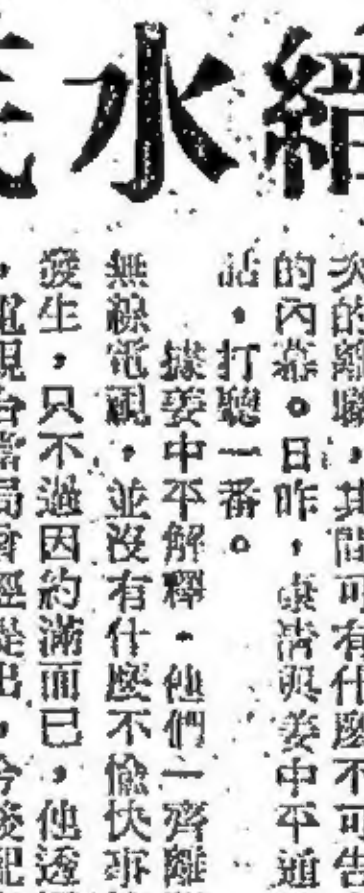 水
次的離職，其間可有什麼不可告
的內幕。日昨，
姜中平通
話，打聽一番。
據姜中平解釋，他們一齊離
無線電視，並沒有什麼不愉快事
發生，只不過因約滿而已，他透
，電視台當局曾經提出，今後配